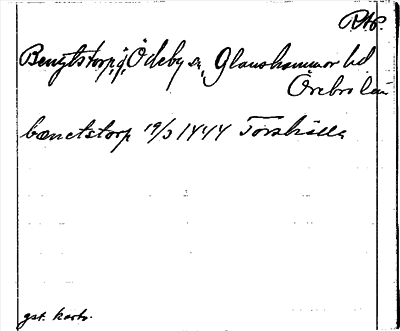 RAp.
Bengtstorp, g, Ödeby sn, Glanshammar hd
Örebro län
bænctstorp 19/3 1444 Torshälla
gst. kartb.